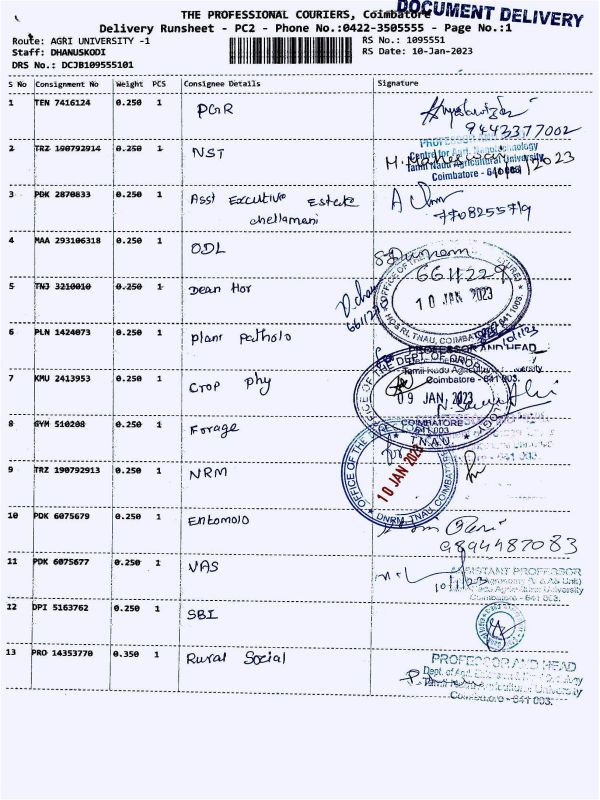 THE PROFESSIONAL COURIERS, Coimbatore
DOCUMENT DELIVERY
Delivery Runsheet - PC2 - Phone No.:0422-3505555 - Page No.:1
Route: AGRI UNIVERSITY -1
RS No.: 1095551
Staff: DHANUSKODI
RS Date: 10-Jan-2023
DRS No.: DCJB109555101
S No Consignment No Weight PCS Consignee Details Signature
1 TEN 7416124 0.250 1 PGR
9443377002
2 TRZ 190792914 0.250 1 NST
Centre for Agrl. Nanotechnology
Tamil Nadu Agricultural University
Coimbatore - 641 003
3 PDK 2870833 0.250 1 Asst Executive Estate
chellamani
7708255719
4 MAA 293106318 0.250 1 ODL
661122
10 JAN 2023
HC& RI, TNAU, COIMBATORE 641 003.
5 TNJ 3210010 0.250 1 Dean Hor
6 PLN 1424073 0.250 1 plant patholo
PROFESSOR AND HEAD
Tamil Nadu Agricultural University
Coimbatore - 641 003.
7 KMU 2413953 0.250 1 Crop phy
09 JAN 2023
COIMBATORE
641 003
T.N.A.U.
8 GYM 510208 0.250 1 Forage
for
9 TRZ 190792913 0.250 1 NRM
OFFICE OF THE
10 JAN 2023
DNRM, TNAU, COIMBATORE
10 PDK 6075679 0.250 1 Entomolo
9894487083
11 PDK 6075677 0.250 1 VAS
ASSISTANT PROFESSOR
Tamil Nadu Agricultural University
Coimbatore - 641 003.
12 DPI 5163762 0.250 1 SBI
13 PRO 14353770 0.350 1 Rural Social
PROFESSOR AND HEAD
Tamil Nadu Agricultural University
Coimbatore - 641 003.